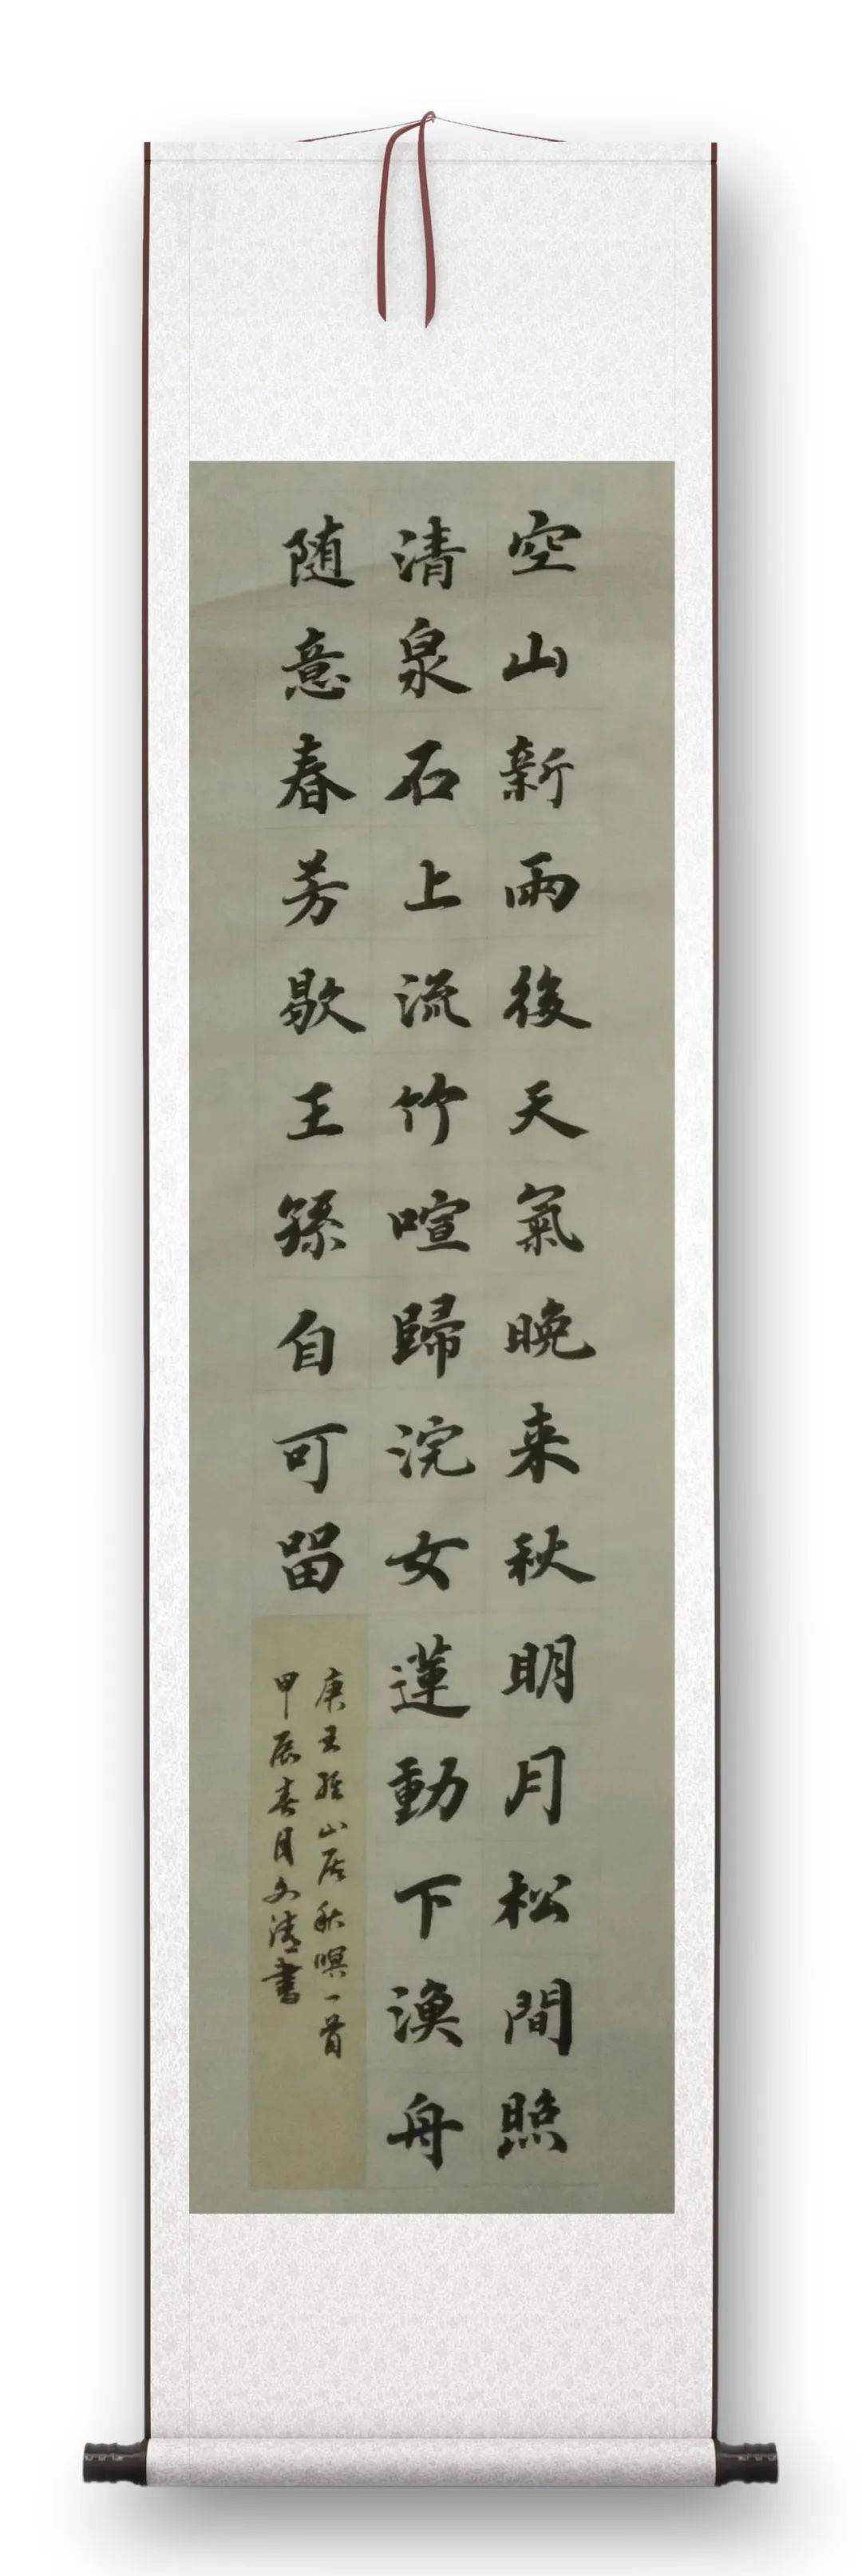 空山新雨後天氣晚来秋明月松間照
清泉石上流竹喧歸浣女蓮動下漁舟
随意春芳歇王孫自可留
唐王維山居秋暝一首
甲辰春月文清書